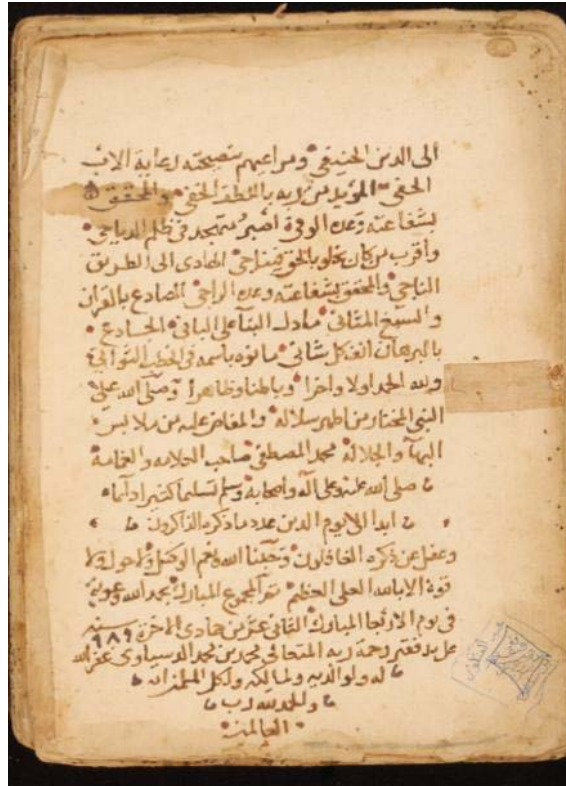 الى الدين الحنيفي ومراعيهم بنصيحته رعاية الاب
الحفي المؤيد من ربه باللطف الخفي والمحقق
بشفاعته وعده الوفي اصبر متهجد في ظلم الدياجي
واقرب من كان يخلو بالحق فيناجي الهادي الى الطريق
الناجي والمحقق بشفاعته وعد الراجي الصادع بالقران
والسبع المثاني مادل البنا على الباني الخادع
بالبرهان انف كل شاني ما نوه باسمه في الخطب التواني
ولله الحمد اولا واخرا وباطنا وظاهرا وصلى الله على
النبي المختار من اطهر سلاله والمفاض عليه من ملابس
البهآ والجلاله محمد المصطفى صاحب العلامه والغمامة
صلى الله عليه وعلى اله واصحابه وسلم تسليما كثيرا دآيما
ابدا الى يوم الدين عدد ما ذكره الذاكرون
وغفل عن ذكره الغافلون وحسبنا الله ونعم الوكيل ولا حول ولا
قوة الا بالله العلي العظيم تم المجموع المبارك بحمد الله وعونه
في يوم الاربعا المبارك الثاني عشر من جمادي الاخرة سنه ٩٨٩
على يد فقير رحمة ربه المتعالي محمد بن محمد غفر الله
له ولوالديه ولمالكه ولكل المسلمين
والحمد لله رب
العالمين